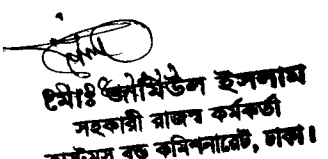 মোঃ জামিউল ইসলাম
সহকারী রাজস্ব কর্মকর্তা
কাস্টমস বন্ড কমিশনারেট, ঢাকা।